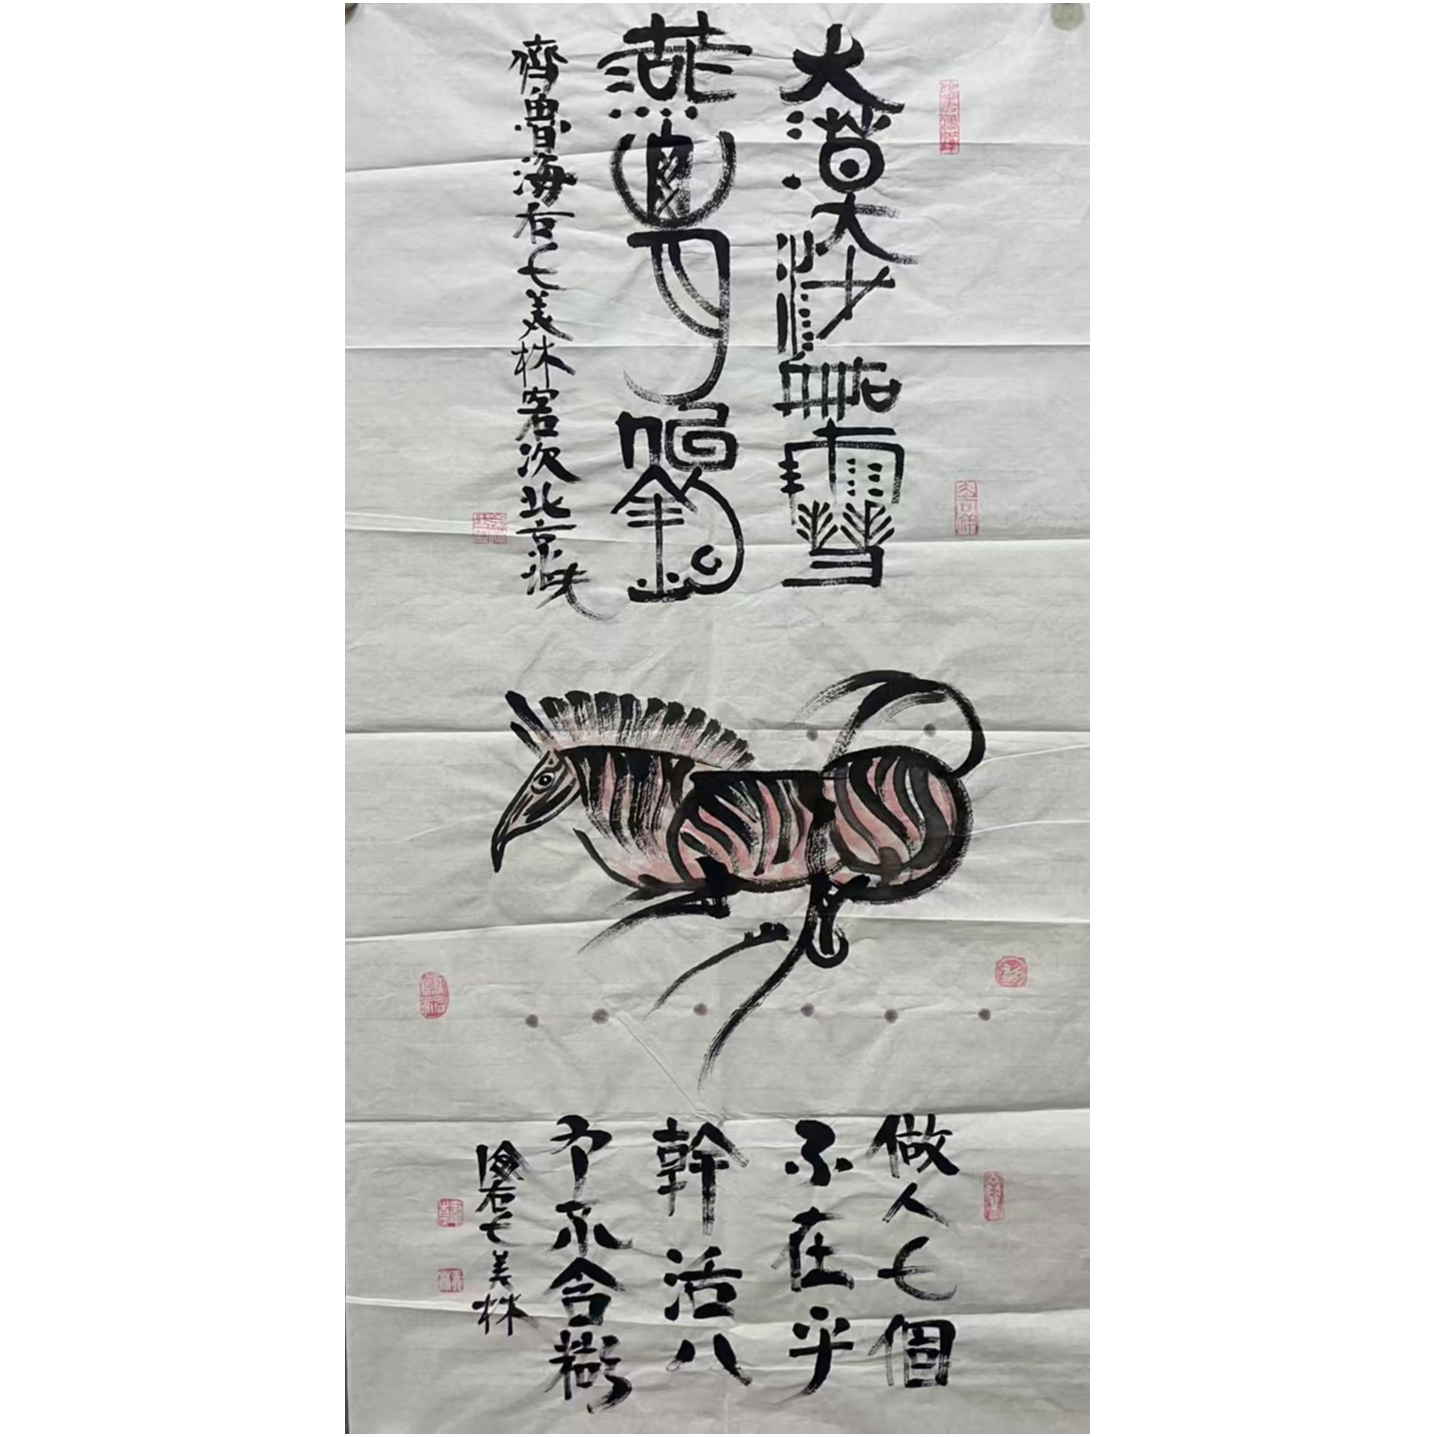 大漠沙如雪
燕山月似鈎
齊魯海右七美林客次北京
做人七個
不在乎
幹活八
个不含糊
海右七美林